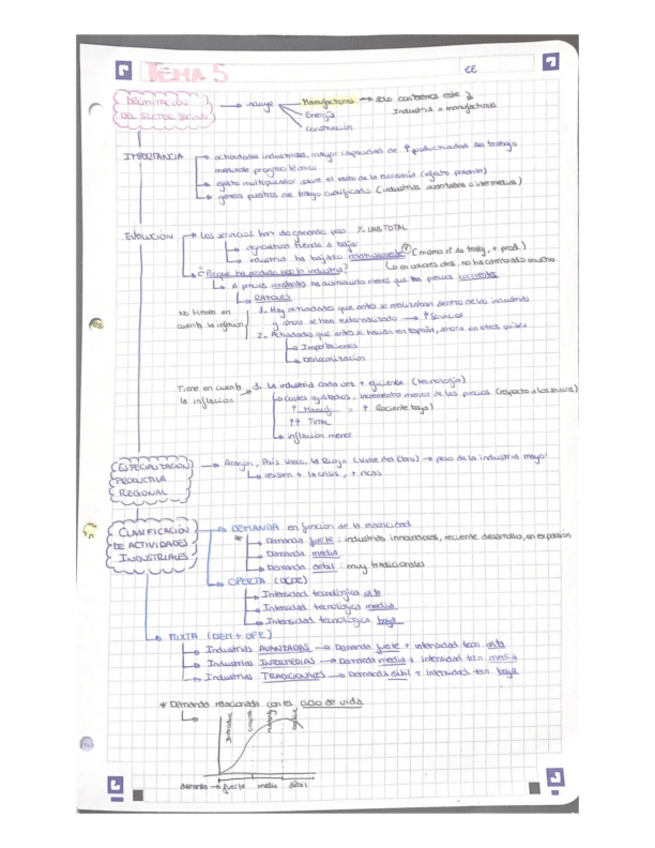 TEMA 5
EE
DELIMITACIÓN DEL SECTOR → incluye
Manufacturas → solo contaremos este
Industria = manufacturas
Energía
Construcción
IMPORTANCIA → actividades industriales, mayor capacidad de ↑ productividad del trabajo
mediante progreso técnico
→ efecto multiplicador sobre el resto de la economía (efecto)
→ genera puestos de trabajo cualificado (industrias avanzadas o intermedias)
EVOLUCIÓN → Los servicios han ido ganando peso % VAB TOTAL
→ agricultura tiende a bajar
→ industria ha bajado relativamente (mismo nº de trabaj, + prod.)
↳ en valores abs, no ha cambiado mucho
→ ¿Porque ha perdido peso la industria?
↳ A precios constantes ha disminuido menos que a precios corrientes
↳ RAZONES
No tienen en cuenta la inflación
1. Hay actividades que antes se realizaban dentro de las industrias
y ahora se han externalizado → ↑ Servicios
2. Actividades que antes se hacían en España, ahora en otros países
→ Importaciones
→ Deslocalización
Tiene en cuenta la inflación → 3. La industria cada vez + eficiente (tecnología)
→ Costes ajustados, incremento menor de los precios (respecto a los servicios)
↑ Manuf = ↑ (cociente bajo)
↑↑ TOTAL
→ inflación menor
ESPECIALIZACIÓN PRODUCTIVA REGIONAL
→ Aragón, País Vasco, La Rioja (Valle del Ebro) → peso de la industria mayor
↳ resisten + la crisis, + ricas
CLASIFICACIÓN DE ACTIVIDADES INDUSTRIALES
→ DEMANDA en función de la elasticidad
*
→ Demanda fuerte: industrias innovadoras, reciente desarrollo, en expansión
→ Demanda media
→ Demanda débil: muy tradicionales
→ OFERTA (OCDE)
→ Intensidad tecnológica alta
→ Intensidad tecnológica media
→ Intensidad tecnológica baja
→ MIXTA (DEM + OFE)
→ Industrias AVANZADAS → Demanda fuerte + intensidad tecn. alta
→ Industrias INTERMEDIAS → Demanda media + intensidad tecn. media
→ Industrias TRADICIONALES → Demanda débil + intensidad tecn. baja
* Demanda relacionada con el ciclo de vida
demanda → fuerte media débil